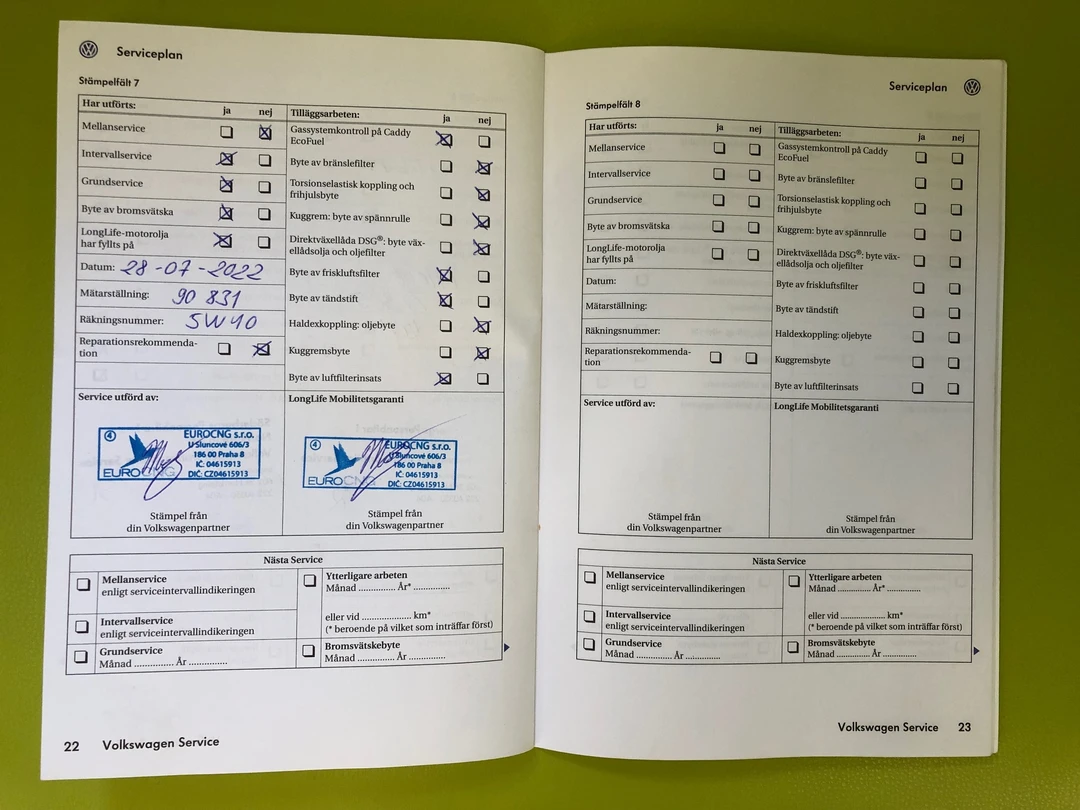 Serviceplan
Stämpelfält 7
Har utförts: ja nej
Mellanservice
Intervallservice
Grundservice
Byte av bromsvätska
LongLife-motorolja
har fyllts på
Datum: 28-07-2022
Mätarställning: 90 831
Räkningsnummer: 5W40
Reparationsrekommenda-
tion
Tilläggsarbeten: ja nej
Gassystemkontroll på Caddy
EcoFuel
Byte av bränslefilter
Torsionselastisk koppling och
frihjulsbyte
Kuggrem: byte av spännrulle
Direktväxellåda DSG®: byte väx-
ellådsolja och oljefilter
Byte av friskluftsfilter
Byte av tändstift
Haldexkoppling: oljebyte
Kuggremsbyte
Byte av luftfilterinsats
Service utförd av:
4
EUROCNG
EUROCNG s.r.o.
U Sluncové 606/3
186 00 Praha 8
IČ: 04615913
DIČ: CZ04615913
Stämpel från
din Volkswagenpartner
LongLife Mobilitetsgaranti
4
EUROCNG
EUROCNG s.r.o.
U Sluncové 606/3
186 00 Praha 8
IČ: 04615913
DIČ: CZ04615913
Stämpel från
din Volkswagenpartner
Nästa Service
Mellanservice
enligt serviceintervallindikeringen
Intervallservice
enligt serviceintervallindikeringen
Grundservice
Månad .............. År ..............
Ytterligare arbeten
Månad .............. År* ..............
eller vid .............. km*
(* beroende på vilket som inträffar först)
Bromsvätskebyte
Månad .............. År ..............
22 Volkswagen Service
Serviceplan
Stämpelfält 8
Har utförts: ja nej
Mellanservice
Intervallservice
Grundservice
Byte av bromsvätska
LongLife-motorolja
har fyllts på
Datum:
Mätarställning:
Räkningsnummer:
Reparationsrekommenda-
tion
Tilläggsarbeten: ja nej
Gassystemkontroll på Caddy
EcoFuel
Byte av bränslefilter
Torsionselastisk koppling och
frihjulsbyte
Kuggrem: byte av spännrulle
Direktväxellåda DSG®: byte väx-
ellådsolja och oljefilter
Byte av friskluftsfilter
Byte av tändstift
Haldexkoppling: oljebyte
Kuggremsbyte
Byte av luftfilterinsats
Service utförd av:
Stämpel från
din Volkswagenpartner
LongLife Mobilitetsgaranti
Stämpel från
din Volkswagenpartner
Nästa Service
Mellanservice
enligt serviceintervallindikeringen
Intervallservice
enligt serviceintervallindikeringen
Grundservice
Månad .............. År ..............
Ytterligare arbeten
Månad .............. År* ..............
eller vid .............. km*
(* beroende på vilket som inträffar först)
Bromsvätskebyte
Månad .............. År ..............
Volkswagen Service 23